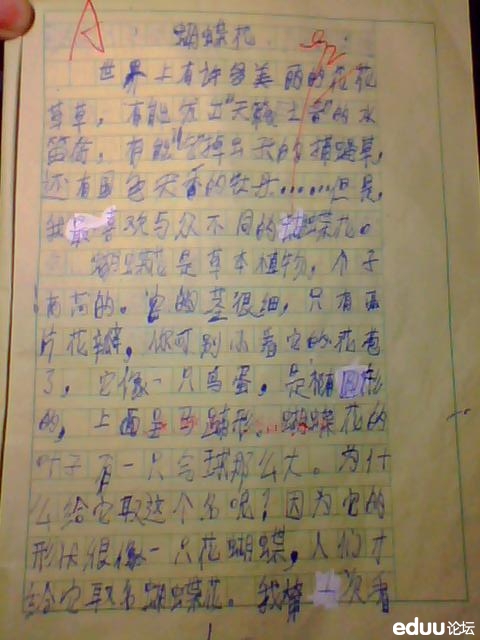 A
蝴蝶花
世界上有许多美丽的花花
草草,有能发出"天籁之音"的水
笛花,有能"吃掉"的捕蝇草,
还有国色天香的牡丹……但是,
我最喜欢与众不同的蝴蝶花。
蝴蝶花是草本植物,个子
高高的。它的茎很细,只有五
片花瓣,你可别小看它的花苞
了,它像一只鸟蛋,是椭圆形
的,上面呈马蹄形。蝴蝶花的
叶子有一只气球那么大。为什
么给它取这个名呢?因为它的
形状很像一只花蝴蝶,人们才
给它取名蝴蝶花。我第一次看
1
eduu论坛